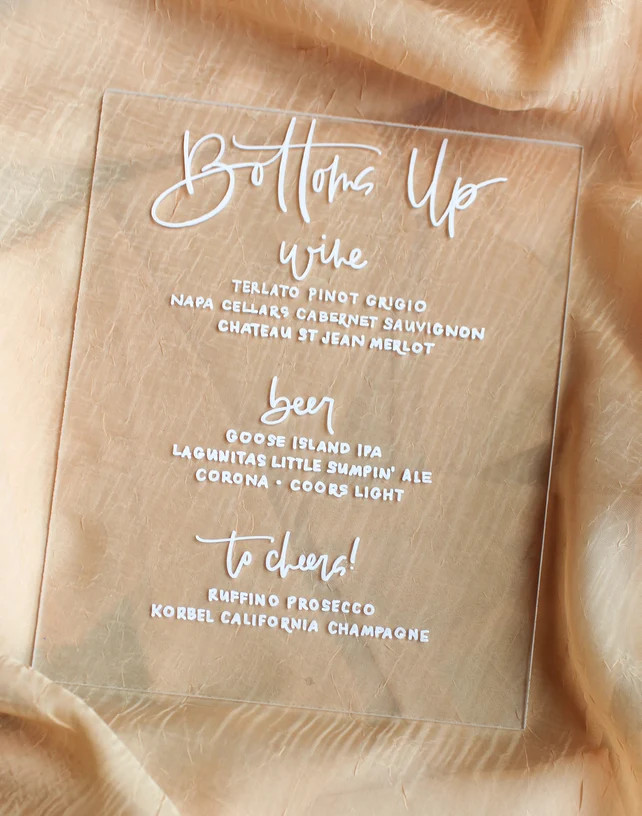 Bottoms Up
wine
TERLATO PINOT GRIGIO
NAPA CELLARS CABERNET SAUVIGNON
CHATEAU ST JEAN MERLOT
beer
GOOSE ISLAND IPA
LAGUNITAS LITTLE SUMPIN' ALE
CORONA • COORS LIGHT
to cheers!
RUFFINO PROSECCO
KORBEL CALIFORNIA CHAMPAGNE